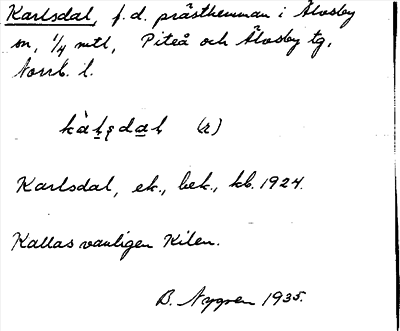 Karlsdal, f.d. prästhemman i Älvsby
sn, 1/4 mtl, Piteå och Älvsby tg,
Norrb. l.
(r)
Karlsdal, ek., bek., kb. 1924.
Kallas vanligen Kilen.
B. Nygren 1935.